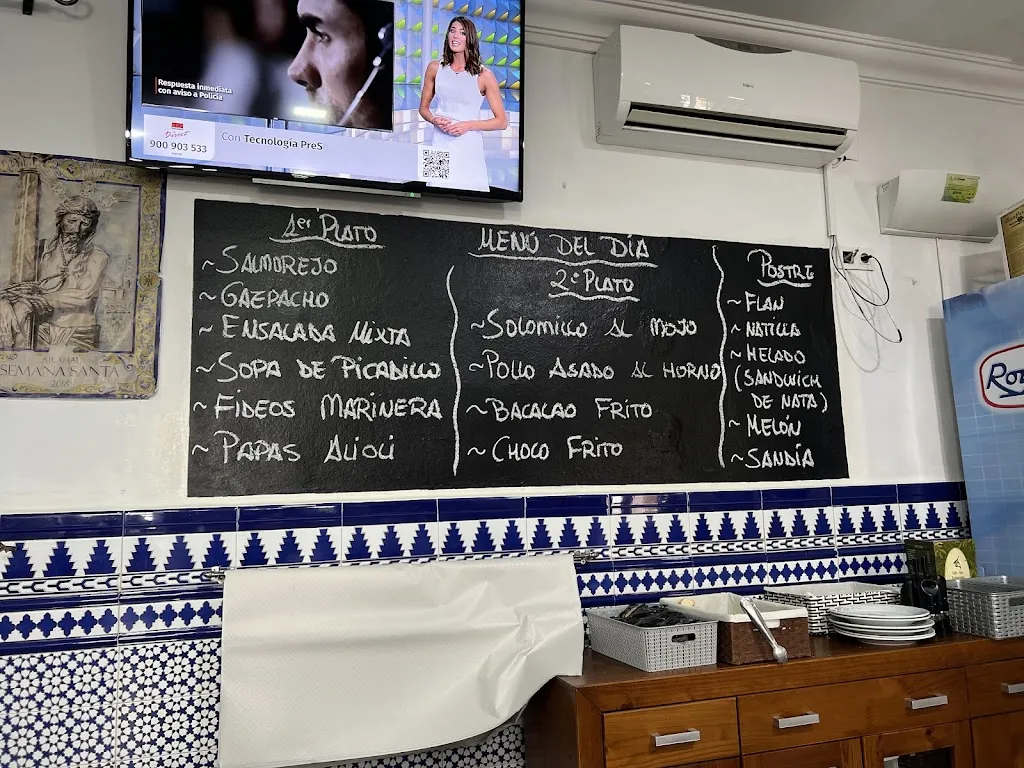 Respuesta inmediata
con aviso a Policía
Direct
900 903 533
Con Tecnología PreS
ARAHAL
SEMANA SANTA
2018
1er PLATO
~SALMOREJO
~GAZPACHO
~ENSALADA MIXTA
~SOPA DE PICADILLO
~FIDEOS MARINERA
~PAPAS ALIOLI
MENÚ DEL DÍA
2º PLATO
~SOLOMILLO AL MOJO
~POLLO ASADO AL HORNO
~BACALAO FRITO
~CHOCO FRITO
POSTRE
~FLAN
~NATILLA
~HELADO
(SANDWICH
DE NATA)
~MELÓN
~SANDÍA